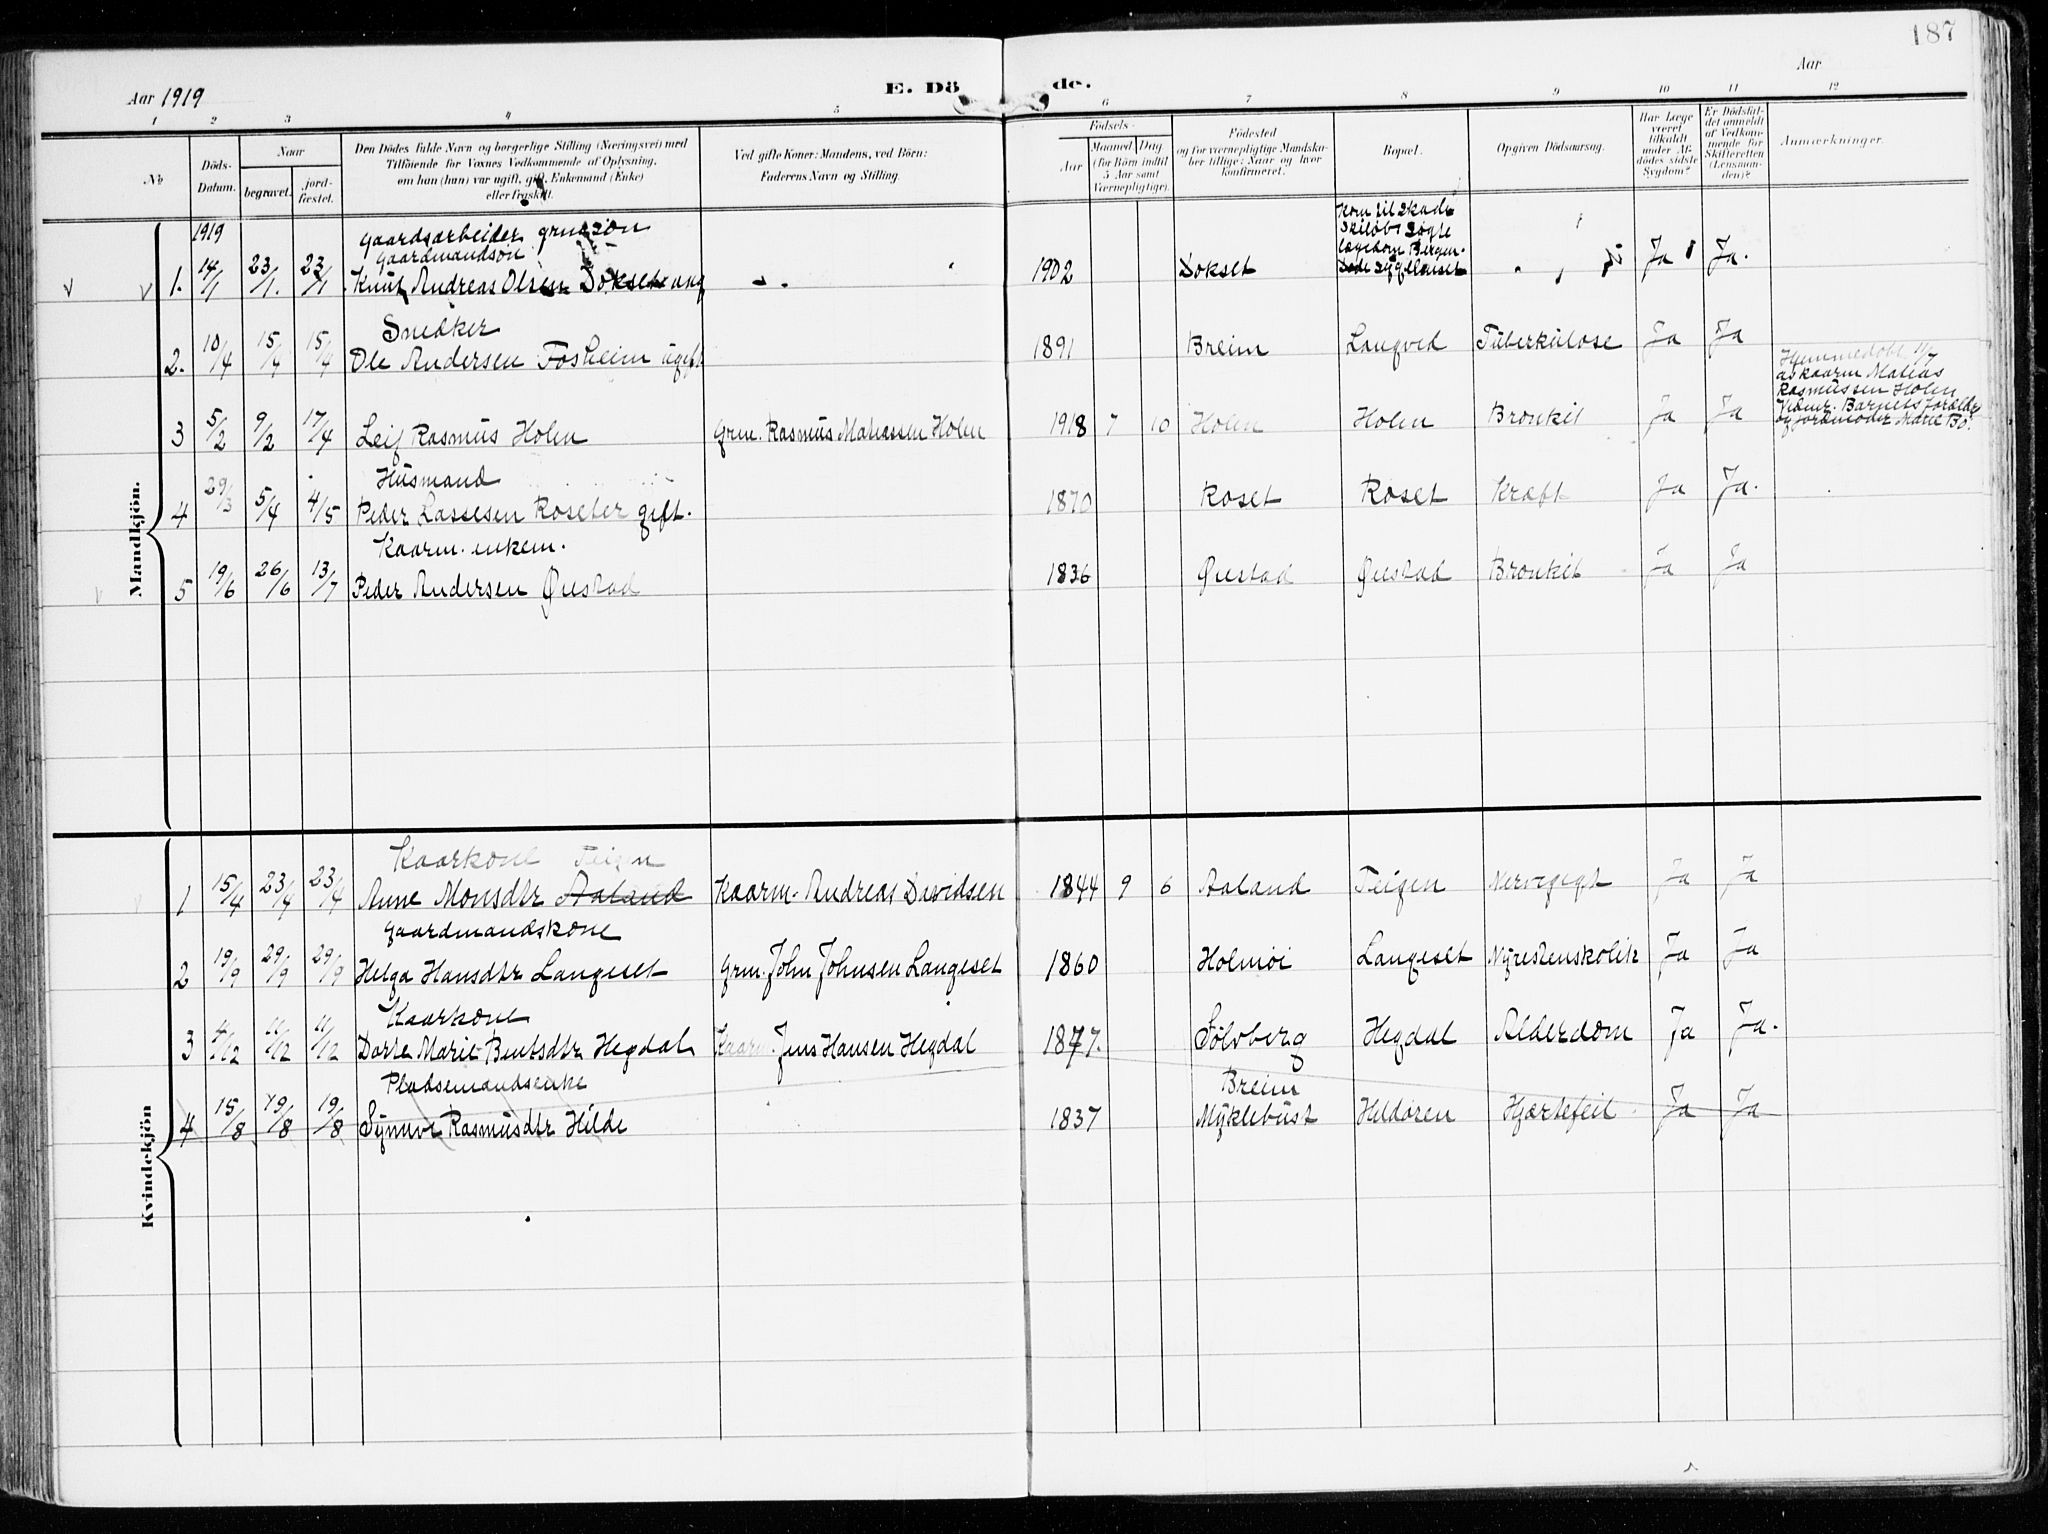 187
Aar 1919
E. Dö
de.
Aar
1 2 3 4 5 6 7 8 9 10 11 12
No
Döds-Datum.
Naar
begravet.
jord-fæstet.
Den Dödes fulde Navn og borgerlige Stilling (Næringsvei) med
Tilföiende for Voxnes Vedkommende af Oplysning,
om han (hun) var ugift, gift, Enkemand (Enke)
eller fraskilt.
Ved gifte Koner: Mandens, ved Börn:
Faderens Navn og Stilling.
Födsels-
Aar
Maaned Dag
(for Börn indtil
5 Aar samt
Værnepligtige).
Födested
og for værnepligtige Mandska-
ber tillige: Naar og hvor
konfirmeret.
Bopæl.
Opgiven Dödsaarsag.
Har Læge
været
tilkaldt
under Af-
dödes sidste
Sygdom?
Er Dödsfal-
det anmeldt
af Vedkom-
mende for
Skifteretten
(Lensman-
den)?
Anmærkninger.
Mandkjön.
1919
Gaardsarbeider
gaardmandsøn
1. 14/1 23/1. 23/1 Knut Andreas Olsen Dokset ung 1902 Dokset Ja Ja.
Kom til skade
Skiløb søgte
lægedom Bergen.
Døde sygehuset
Snedker
2. 10/4 15/4 15/4 Ole Andersen Fosheim ugift 1891 Breim Langved Tuberkulose Ja Ja
3 5/2 9/2 17/4 Leif Rasmus Holm Grm. Rasmus Matiassen Holm 1918 7 10 Holm Holm Bronkit Ja Ja
Hjemmedøbt 11/7
av kaarm Matias
Rasmussen Holm
Vidner. Barnets forældr
og jordmoder Marte Bø.
Husmand
4 29/3 5/4 4/5 Peder Lassesen Roseter gift. 1870 Roset Roset Kræft Ja Ja.
Kaarm. enkem.
5 19/6 26/6 13/7 Peder Andersen Ørestad 1836 Ørestad Ørestad Bronkit Ja Ja
Kvindekjön
Kaarkone Teigen
1 15/4 23/4 23/4 Anne Monsdtr Aaland Kaarm. Andreas Davidsen 1844 9 6 Aaland Teigen Nervegigt Ja Ja
Gaardmandskone
2 19/9 29/9 29/9 Helga Hansdtr Langeset Grm. John Johnsen Langeset 1860 Holmøi Langeset Nyrestenskolik Ja Ja
Kaarkone
3 4/12 11/12 11/12 Dorte Marie Bentsdtr Hegdal Kaarm. Jens Hansen Hegdal 1877. Sølvberg Hegdal Alderdom Ja Ja.
Pladsemandsenke
4 15/8 19/8 19/8 Synnve Rasmusdtr Hilde 1837 Breim
Myklebust Hildøren Hjærtefeil Ja Ja